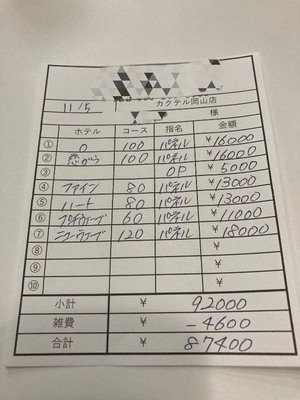 カクテル岡山店
11/5 様
ホテル コース 指名 金額
① O 100 パネル ¥16000
② 恋から 100 パネル ¥16000
③ OP ¥5000
④ ファイン 80 パネル ¥13000
⑤ ハート 80 パネル ¥13000
⑥ 60 パネル ¥11000
⑦ ニューウェーブ 120 パネル ¥18000
⑧
⑨
⑩
小計 ¥ 92000
雑費 ¥ -4600
合計 ¥ 87400